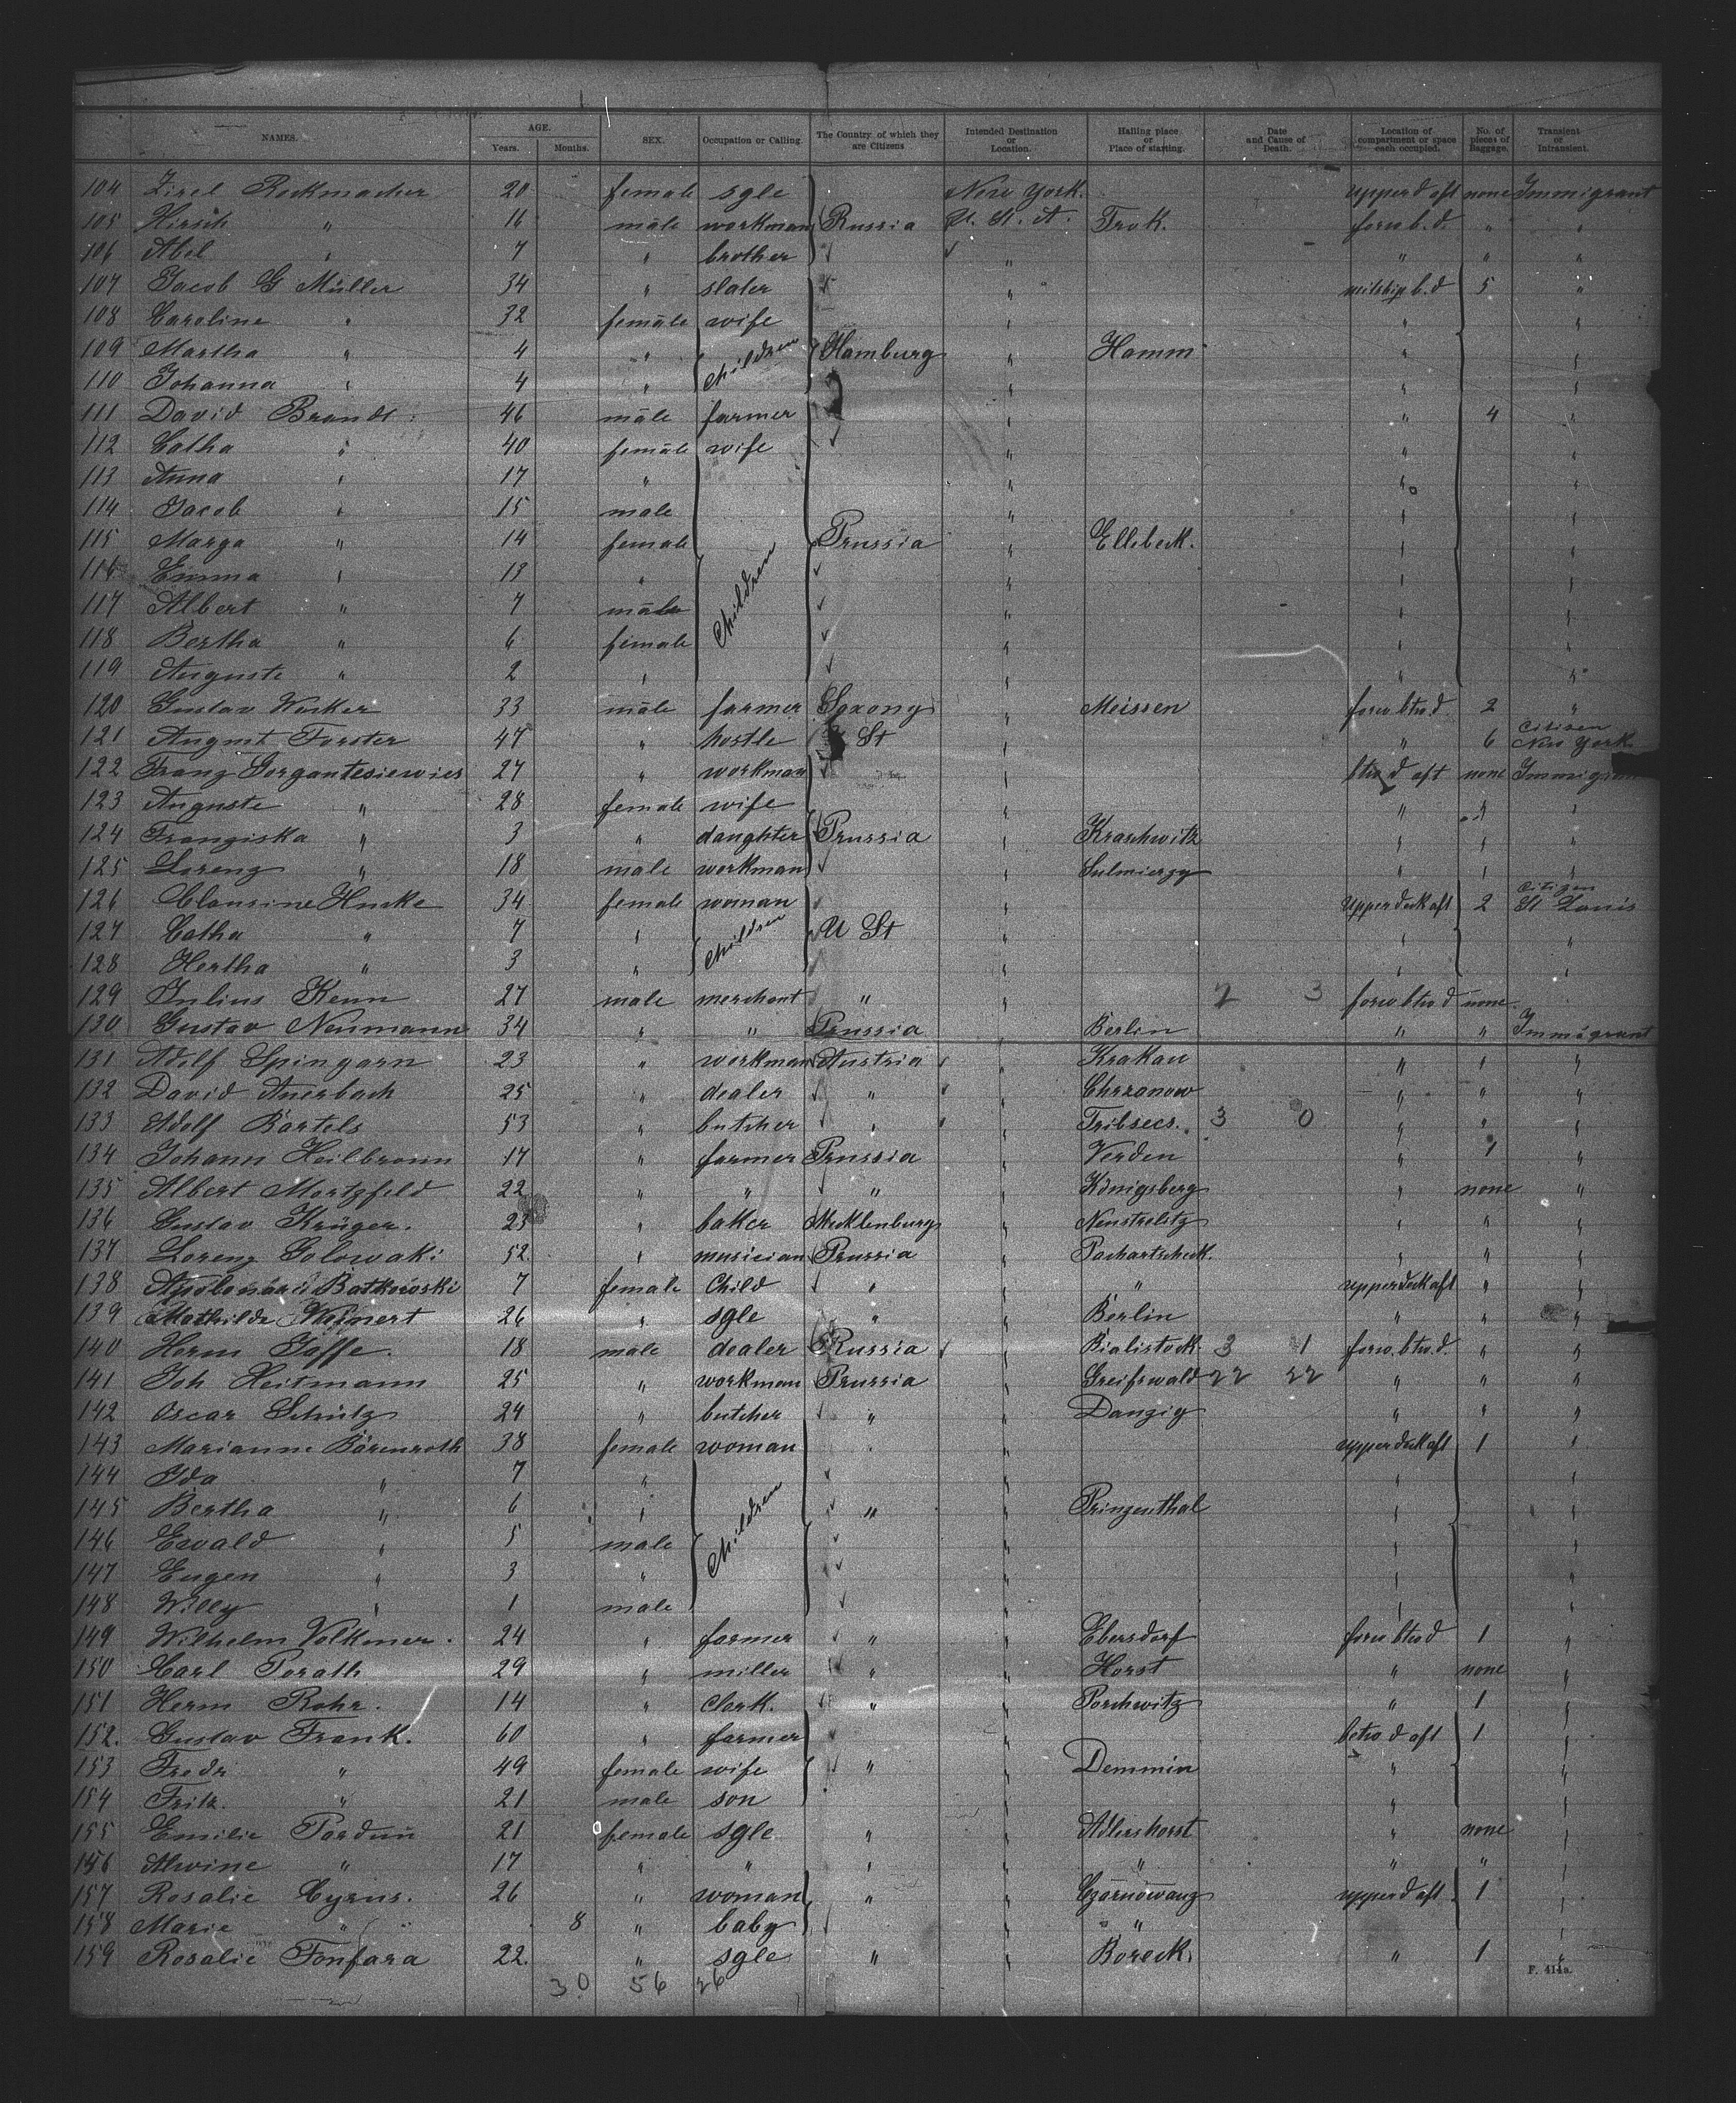 NAMES. AGE. Years. Months. SEX. Occupation or Calling. The Country of which they are Citizens Intended Destination or Location. Hailing place or Place of starting. Date and Cause of Death. Location of compartment or space each occupied. No. of pieces of Baggage. Transient or Intransient.
104 Zirel Rockmacher 20 female sgle New York. upper d aft none Immigrant
105 Hirsch " 16 male workman Russia U. St. A. Trok. forw b. d. " "
106 Abel " 7 " brother " " " "
107 Jacob G Müller 34 " slater " midship b. d 5 "
108 Caroline " 32 female wife " " "
109 Martha " 4 " Children Hamburg " Hamm " "
110 Johanna " 4 " " " "
111 David Brandt. 46 male farmer " " 4 "
112 Catha " 40 female wife " " "
113 Anna " 17 " " " "
114 Jacob " 15 male " " "
115 Marga " 14 female Prussia " Ellebeck. " "
116 Emma " 13 " Children " " "
117 Albert " 7 male " " "
118 Bertha " 6 female " " "
119 Auguste " 2 " " " "
120 Gustav 33 male farmer Saxony " Meissen forw btw d. 2 "
121 August Forster 47 " hostle St " " 6 Citizen New York
122 Franz 27 " workman btw d aft none Immigrant
123 Auguste " 28 female wife " " " "
124 Franziska " 3 " daughter Prussia " Kraschwitz " " "
125 Lorenz " 18 male workman " Sulmierzy " " "
126 Clausine Huske 34 female woman " Upper deck aft 2 Citizen St Louis
127 Catha " 7 " Children U St " " "
128 Hertha " 3 " " " "
129 Julius Kenn 27 male merchant " " 2 3 forw btw d none
130 Gustav Neumann 34 " " Prussia " Berlin " " Immigrant
131 Adolf Spingarn 23 " workman Austria " Krakau " 1 "
132 David Auerbach 25 " dealer " " Chrzanow " " "
133 Adolf Bartels 53 " butcher " " Tribsees. 3 0 " " "
134 Johann Heilbronn 17 " farmer Prussia " Verden " 1 "
135 Albert Mortzfeld 22 " " " " Königsberg " none "
136 Gustav Krüger. 23 " baker Mecklenburg " Neustrelitz " " "
137 Lorenz Golowaki 52. " musician Prussia " Pachartscheck. " " "
138 Batkowski 7 female Child " " " upper deck aft " "
139 Mathilde Weinert 26 " sgle " " Berlin " " "
140 Herm Jaffe. 18 male dealer Russia " Bialistock. 3 1 forw. btw. d. " "
141 Joh Heitmann 25 " workman Prussia " Greifswald 22 22 " " "
142 Oscar Schütz 24 " butcher " " Danzig " " "
143 Marianne Bärenroth 38 female woman " " upper deck aft 1 "
144 Ida " 7 " " " "
145 Bertha " 6 " Children " " Prinzenthal " "
146 Ewald " 5 male " " "
147 Eugen " 3 " " " "
148 Willy " 1 male " " "
149 Wilhelm Volkmer. 24 " farmer " " Ebersdorf forw. btw d 1 "
150 Carl Porath 29 " miller " " Horst " none "
151 Herm Rohr. 14 " Clerk. " " Porschwitz " 1 "
152. Gustav Frank. 60 " farmer " betw d aft 1 "
153 Fredr " 49 female wife " " Demmin " "
154 Fritz. " 21 male son " " "
155 Emilie Pardun 21 female sgle " " Adlershorst " none "
156 Alwine " 17 " " " " " " " "
157 Rosalie Cyrus. 26 " woman " " Czarnowanz upper d aft 1 "
158 Marie " 8 " baby " " "
159 Rosalie Fonfara 22. " sgle " " Boreck. " 1 "
30 56 26
F. 414a.